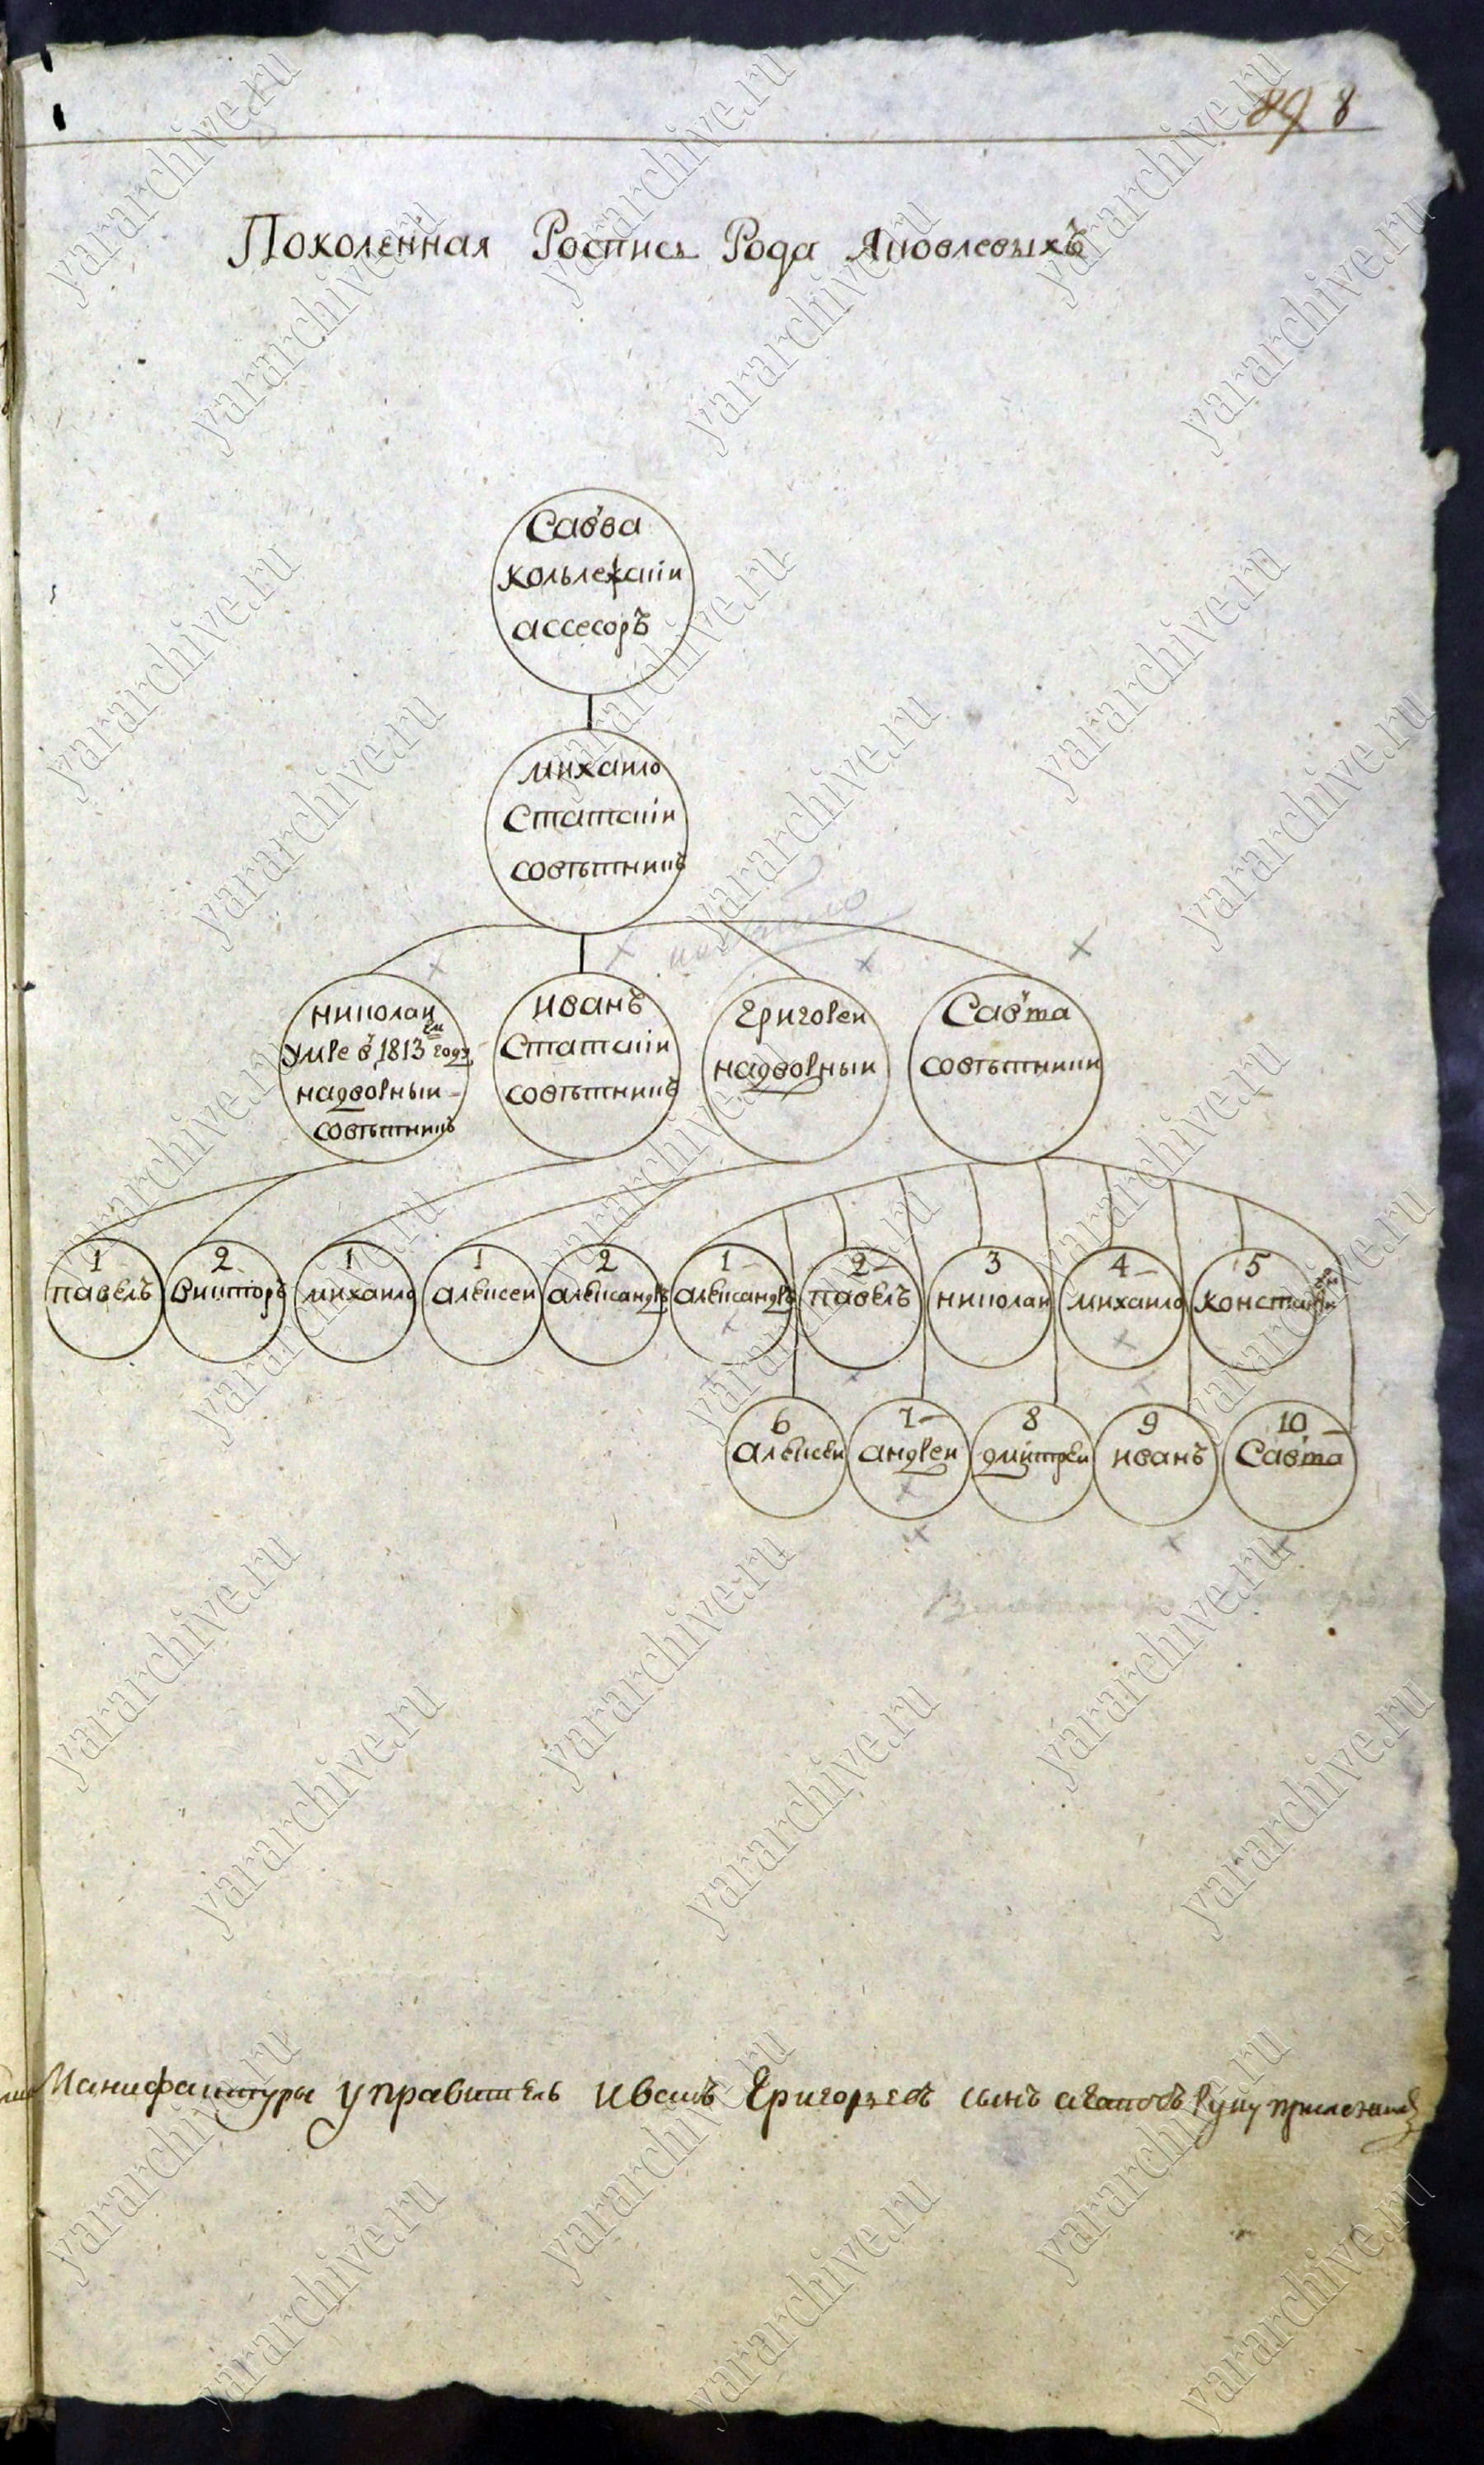 89 8
Поколенная Роспись Рода Яковлевыхъ
Савва
кольлежскіи
ассесоръ
михаило
Статскіи
совѣтникъ
николаи
умре в 1813 ем году
надворныи
совѣтникъ
иванъ
Статскіи
совѣтникъ
григореи
надворныи
Савта
совѣтники
1
павелъ
2
викторъ
1
михаило
1
алексеи
2
александръ
1
александръ
2
павелъ
3
николаи
4
михаило
5
константин
6
алексеи
7
андреи
8
дмитреи
9
иванъ
10
Савта
Манифактуры управитель Иванъ Григорьевъ сынъ руку
yararchive.ru